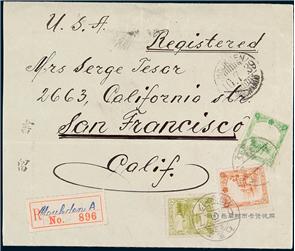 U. S. A.
Registered
Mrs Serge Tesor
2663, California str.
San Francisco
Calif.
R Moukden A
No. 896